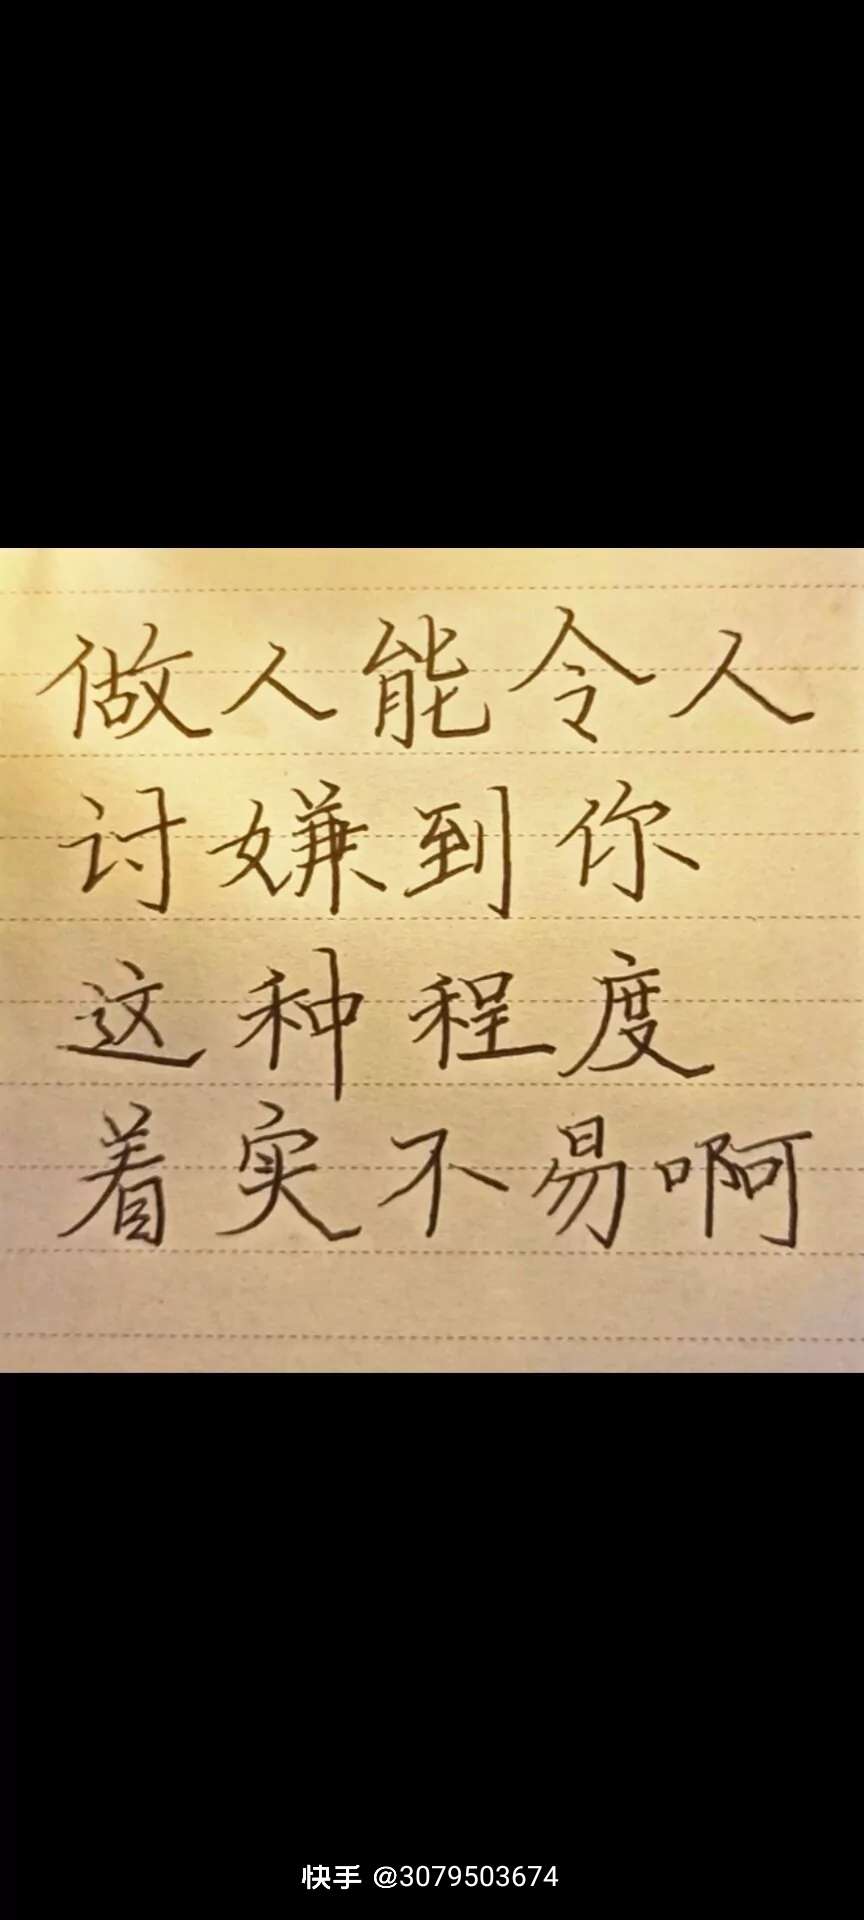 做人能令人
讨嫌到你
这种程度
着实不易啊
快手 @3079503674